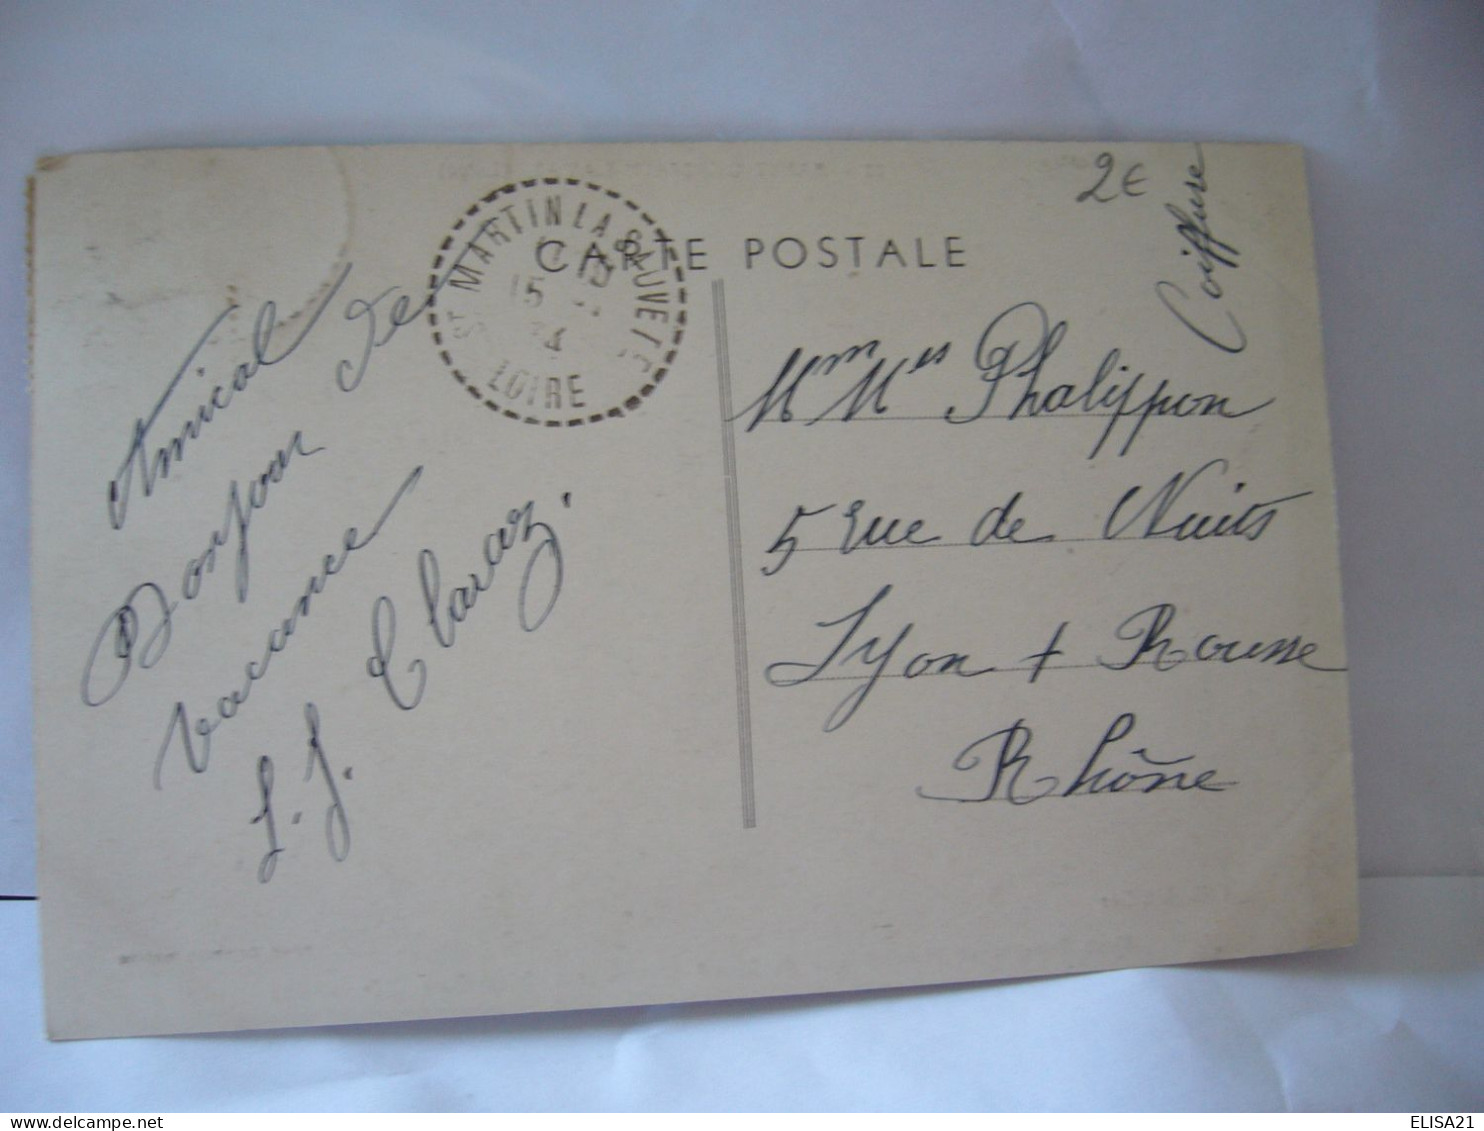 2€
Coiffure
CARTE POSTALE
ST MARTIN LA SAUVETE
15
34
LOIRE
Amical
Bonjour de
vacance
L. J. Claraz.
Mm Mes Phalippon
5 rue de Nuits
Lyon + Rousse
Rhône
ELISA21